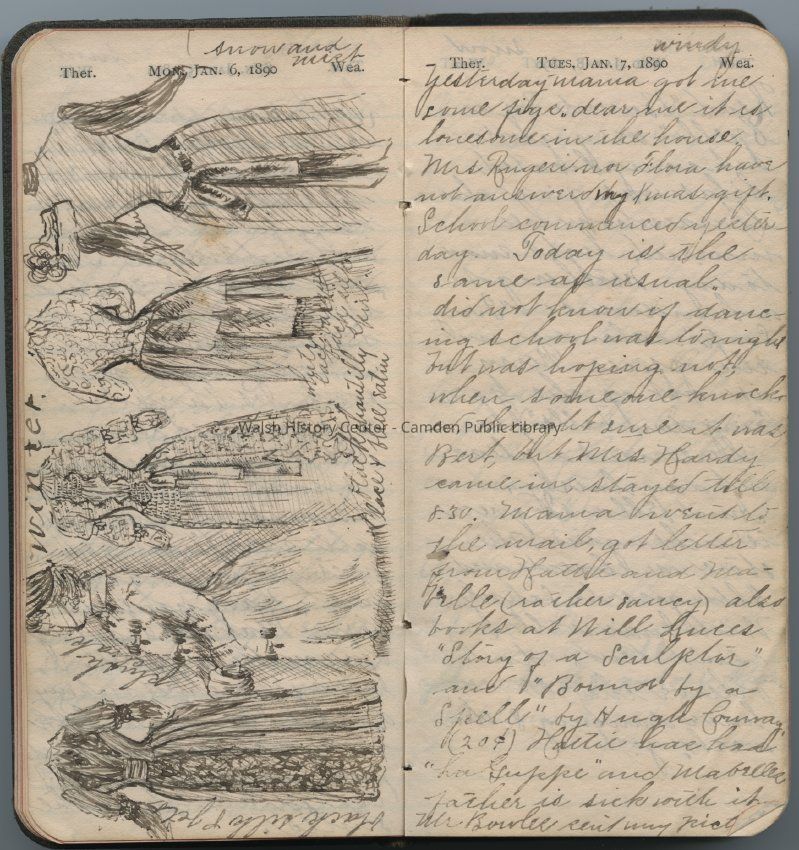 snow and
mist
Ther. MON. JAN. 6, 1890 Wea.
winter.
white
lace
black Chantilly
lace & blue satin
skirt
plush
black silk & jet
Walsh History Center - Camden Public Library
windy
Ther. TUES. JAN. 7, 1890 Wea.
Yesterday mama got me
some figs. dear me it is
lonesome in the house
Mrs Rugeri nor Flora have
not answered my Xmas gift.
School commenced yester-
day. Today is the
same as usual.
did not know if danc-
ing school was tonight
but was hoping not,
when some one knock
thought sure it was
Bert, but Mrs. Hardy
came in, stayed till
8-30. Mama went to
the mail, got letter
from Hattie and Ma-
belle (rather saucy) also
books at Will
"Story of a Sculptor"
and "Bound by a
Spell" by Hugh Conway
(20¢) Hattie has had
"La Grippe" and Mabelles
father is sick with it
Mr Bowler sent my